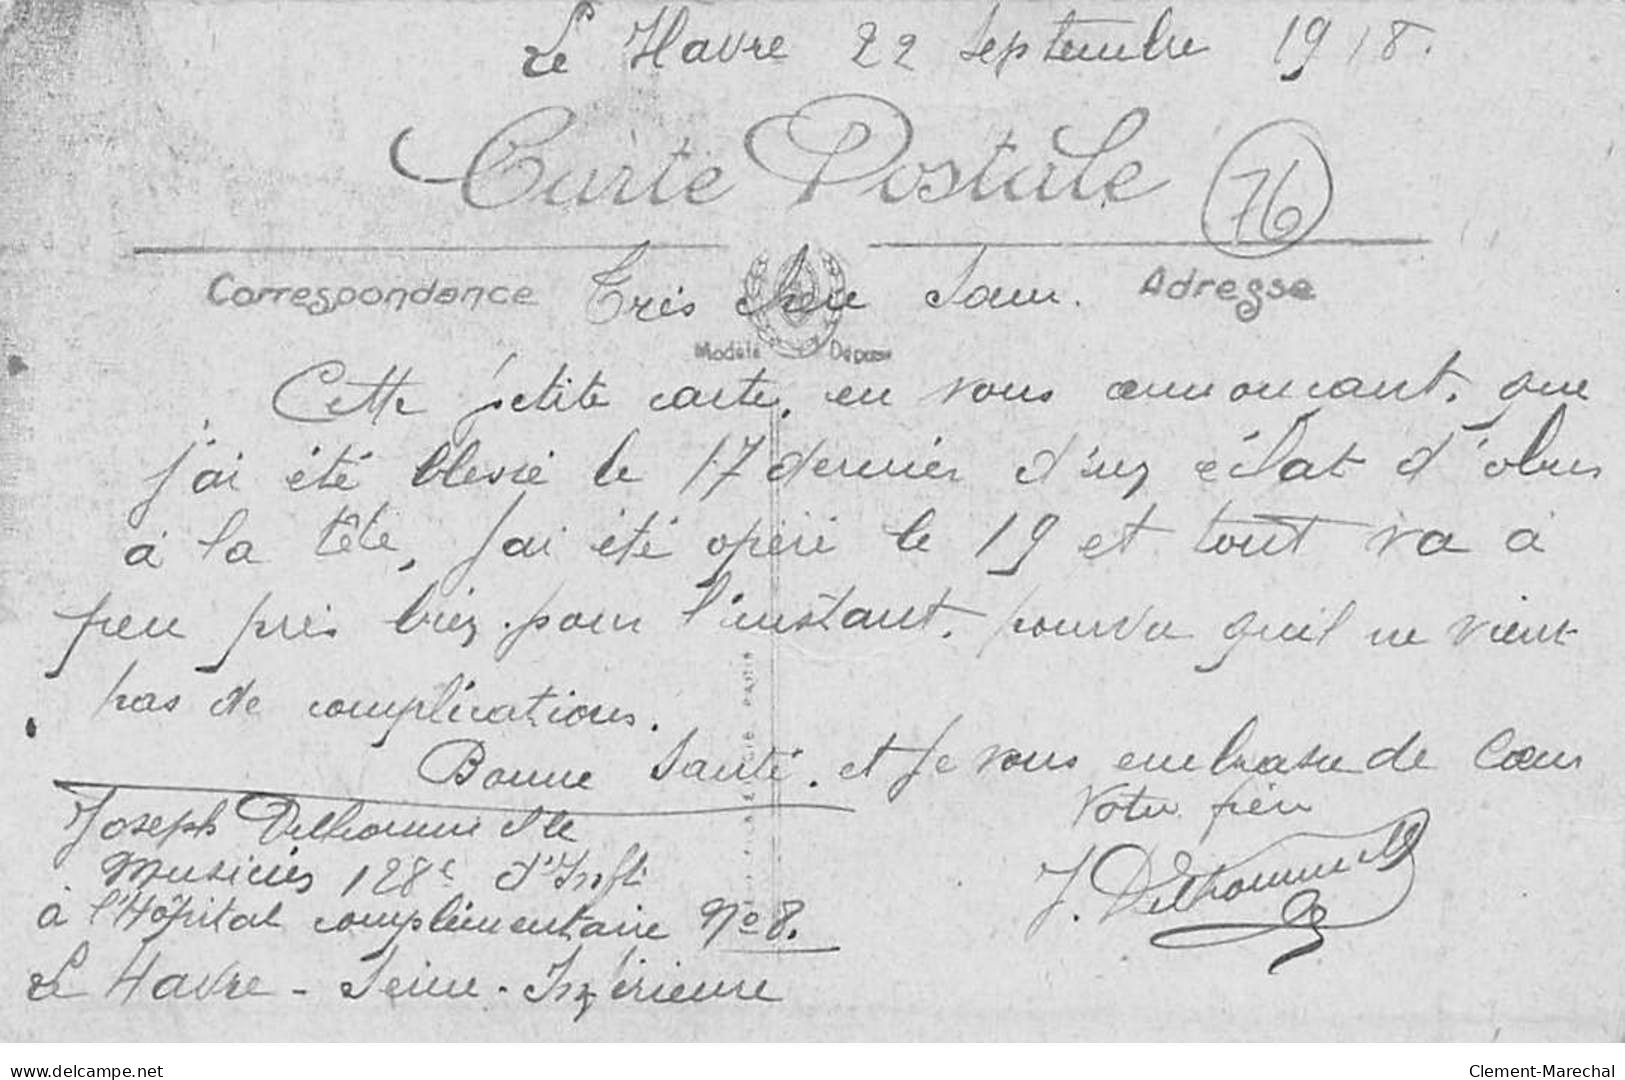 Le Havre 22 Septembre 1918.
Carte Postale
76
Correspondance
Très cheu Sœur.
Adresse
Modèle Déposé
Cette petite carte, en vous annoncant, que
j'ai été blessé le 17 dernier d'un éclat d'obus
à la tête, j'ai été opéré le 19 et tout va à
peu près bien pour l'instant, pourvu qu'il ne vient
pas de complications.
Bonne Santé, et Je vous embrasse de Cœur
Votre frère
J. Delhommelle
Joseph Delhommelle
Musicien 128e d'Inftie
à l'Hôpital complémentaire No 8.
Le Havre - Seine - Inférieure
PARIS
delcampe.net
Clement-Marechal